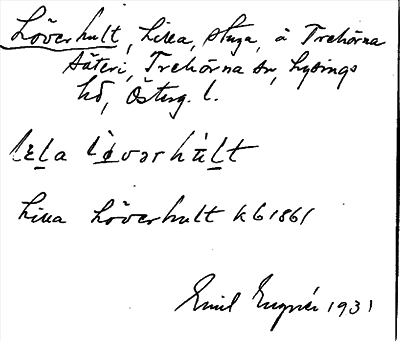 Löverhult, Lilla, stuga, å Trehörna
Säteri, Trehörna sn, Lysings
hd, Österg. l.
Lilla Löverhult kb 1861
Emil Engnér 1931